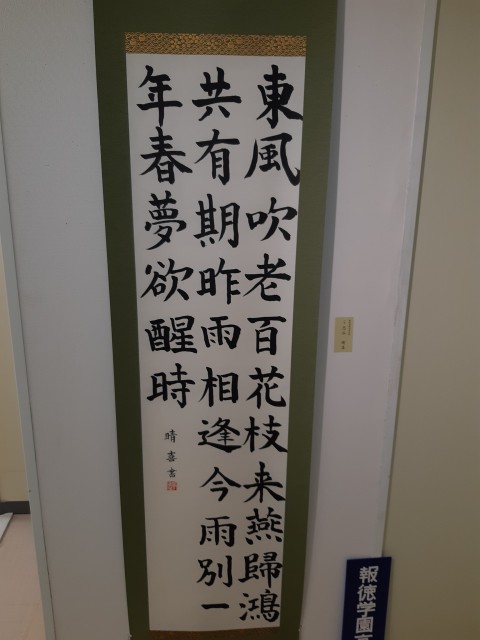 東風吹老百花枝来燕歸鴻
共有期昨雨相逢今雨別一
年春夢欲醒時
晴喜書
報徳学園高